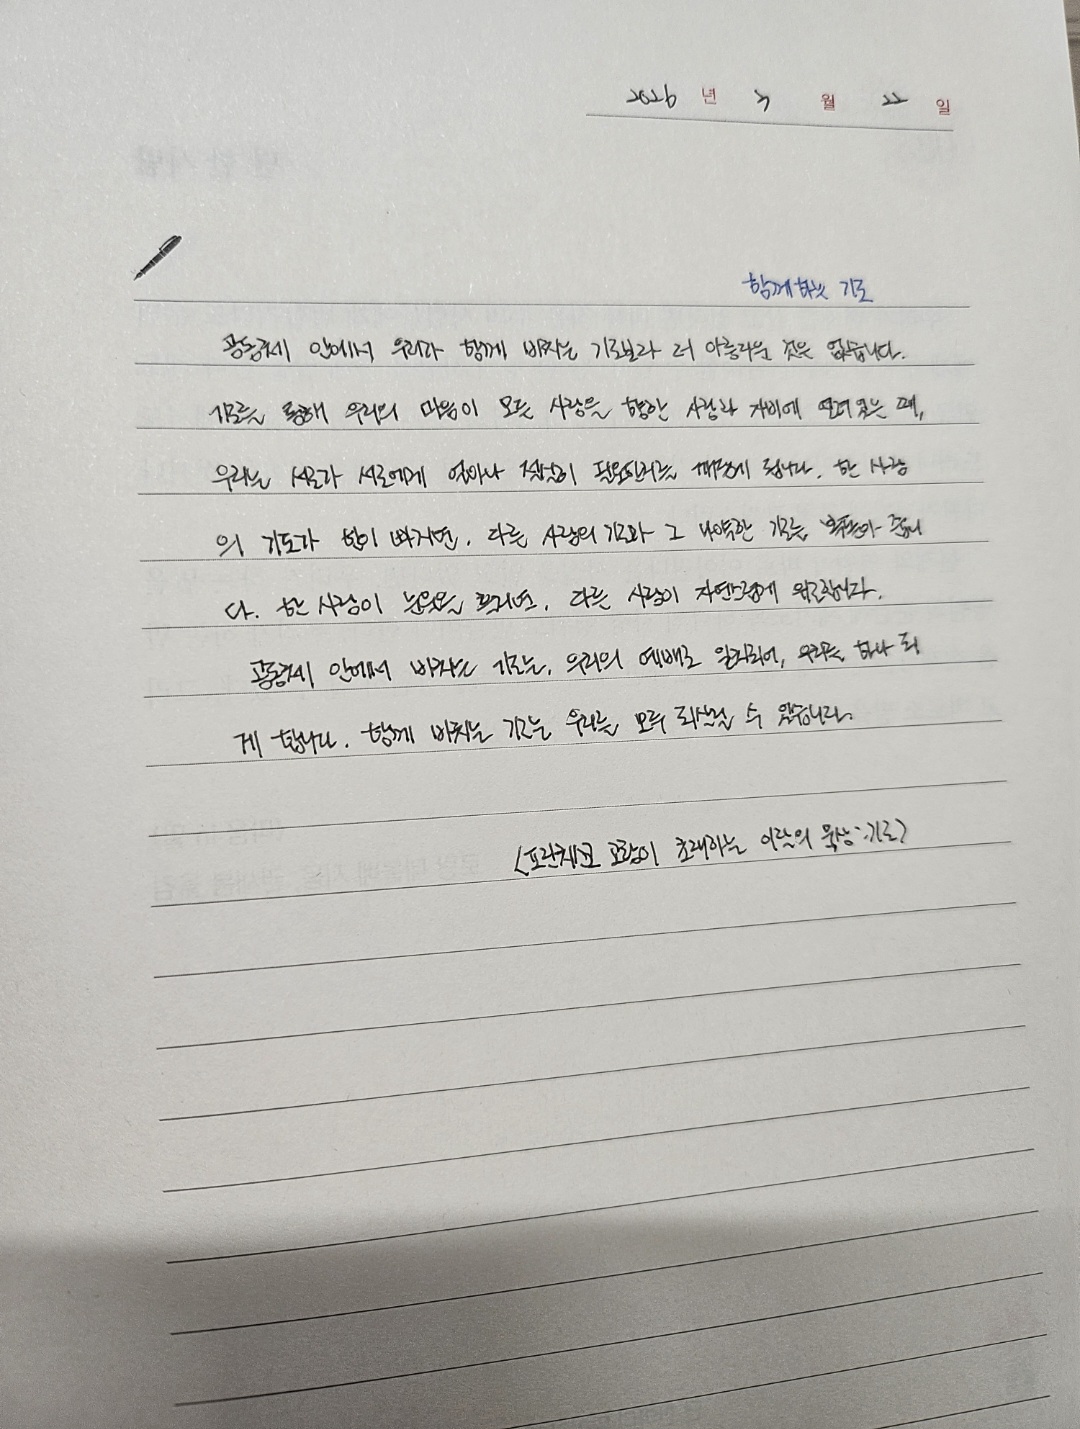 2026 년 3 월 22 일
함께 하는 기도
공동체 안에서 우리가 함께 바치는 기도보다 더 아름다운 것은 없습니다.
기도를 통해 우리의 마음이 모든 사람을 향한 사랑과 자비에 열려 있는 때,
우리는 서로가 서로에게 얼마나 절실히 필요한지를 깨닫게 됩니다. 한 사람
의 기도가 힘이 빠지면, 다른 사람의 기도가 그 나약한 기도를 북돋아 줍니
다. 한 사람이 눈물을 흘리면, 다른 사람이 자연스럽게 위로합니다.
공동체 안에서 바치는 기도는, 우리의 예배로 일치되어, 우리를 하나 되
게 합니다. 함께 바치는 기도는 우리를 모두 되살릴 수 있습니다.
(프란체코 교황이 초대하는 이달의 묵상: 기도)